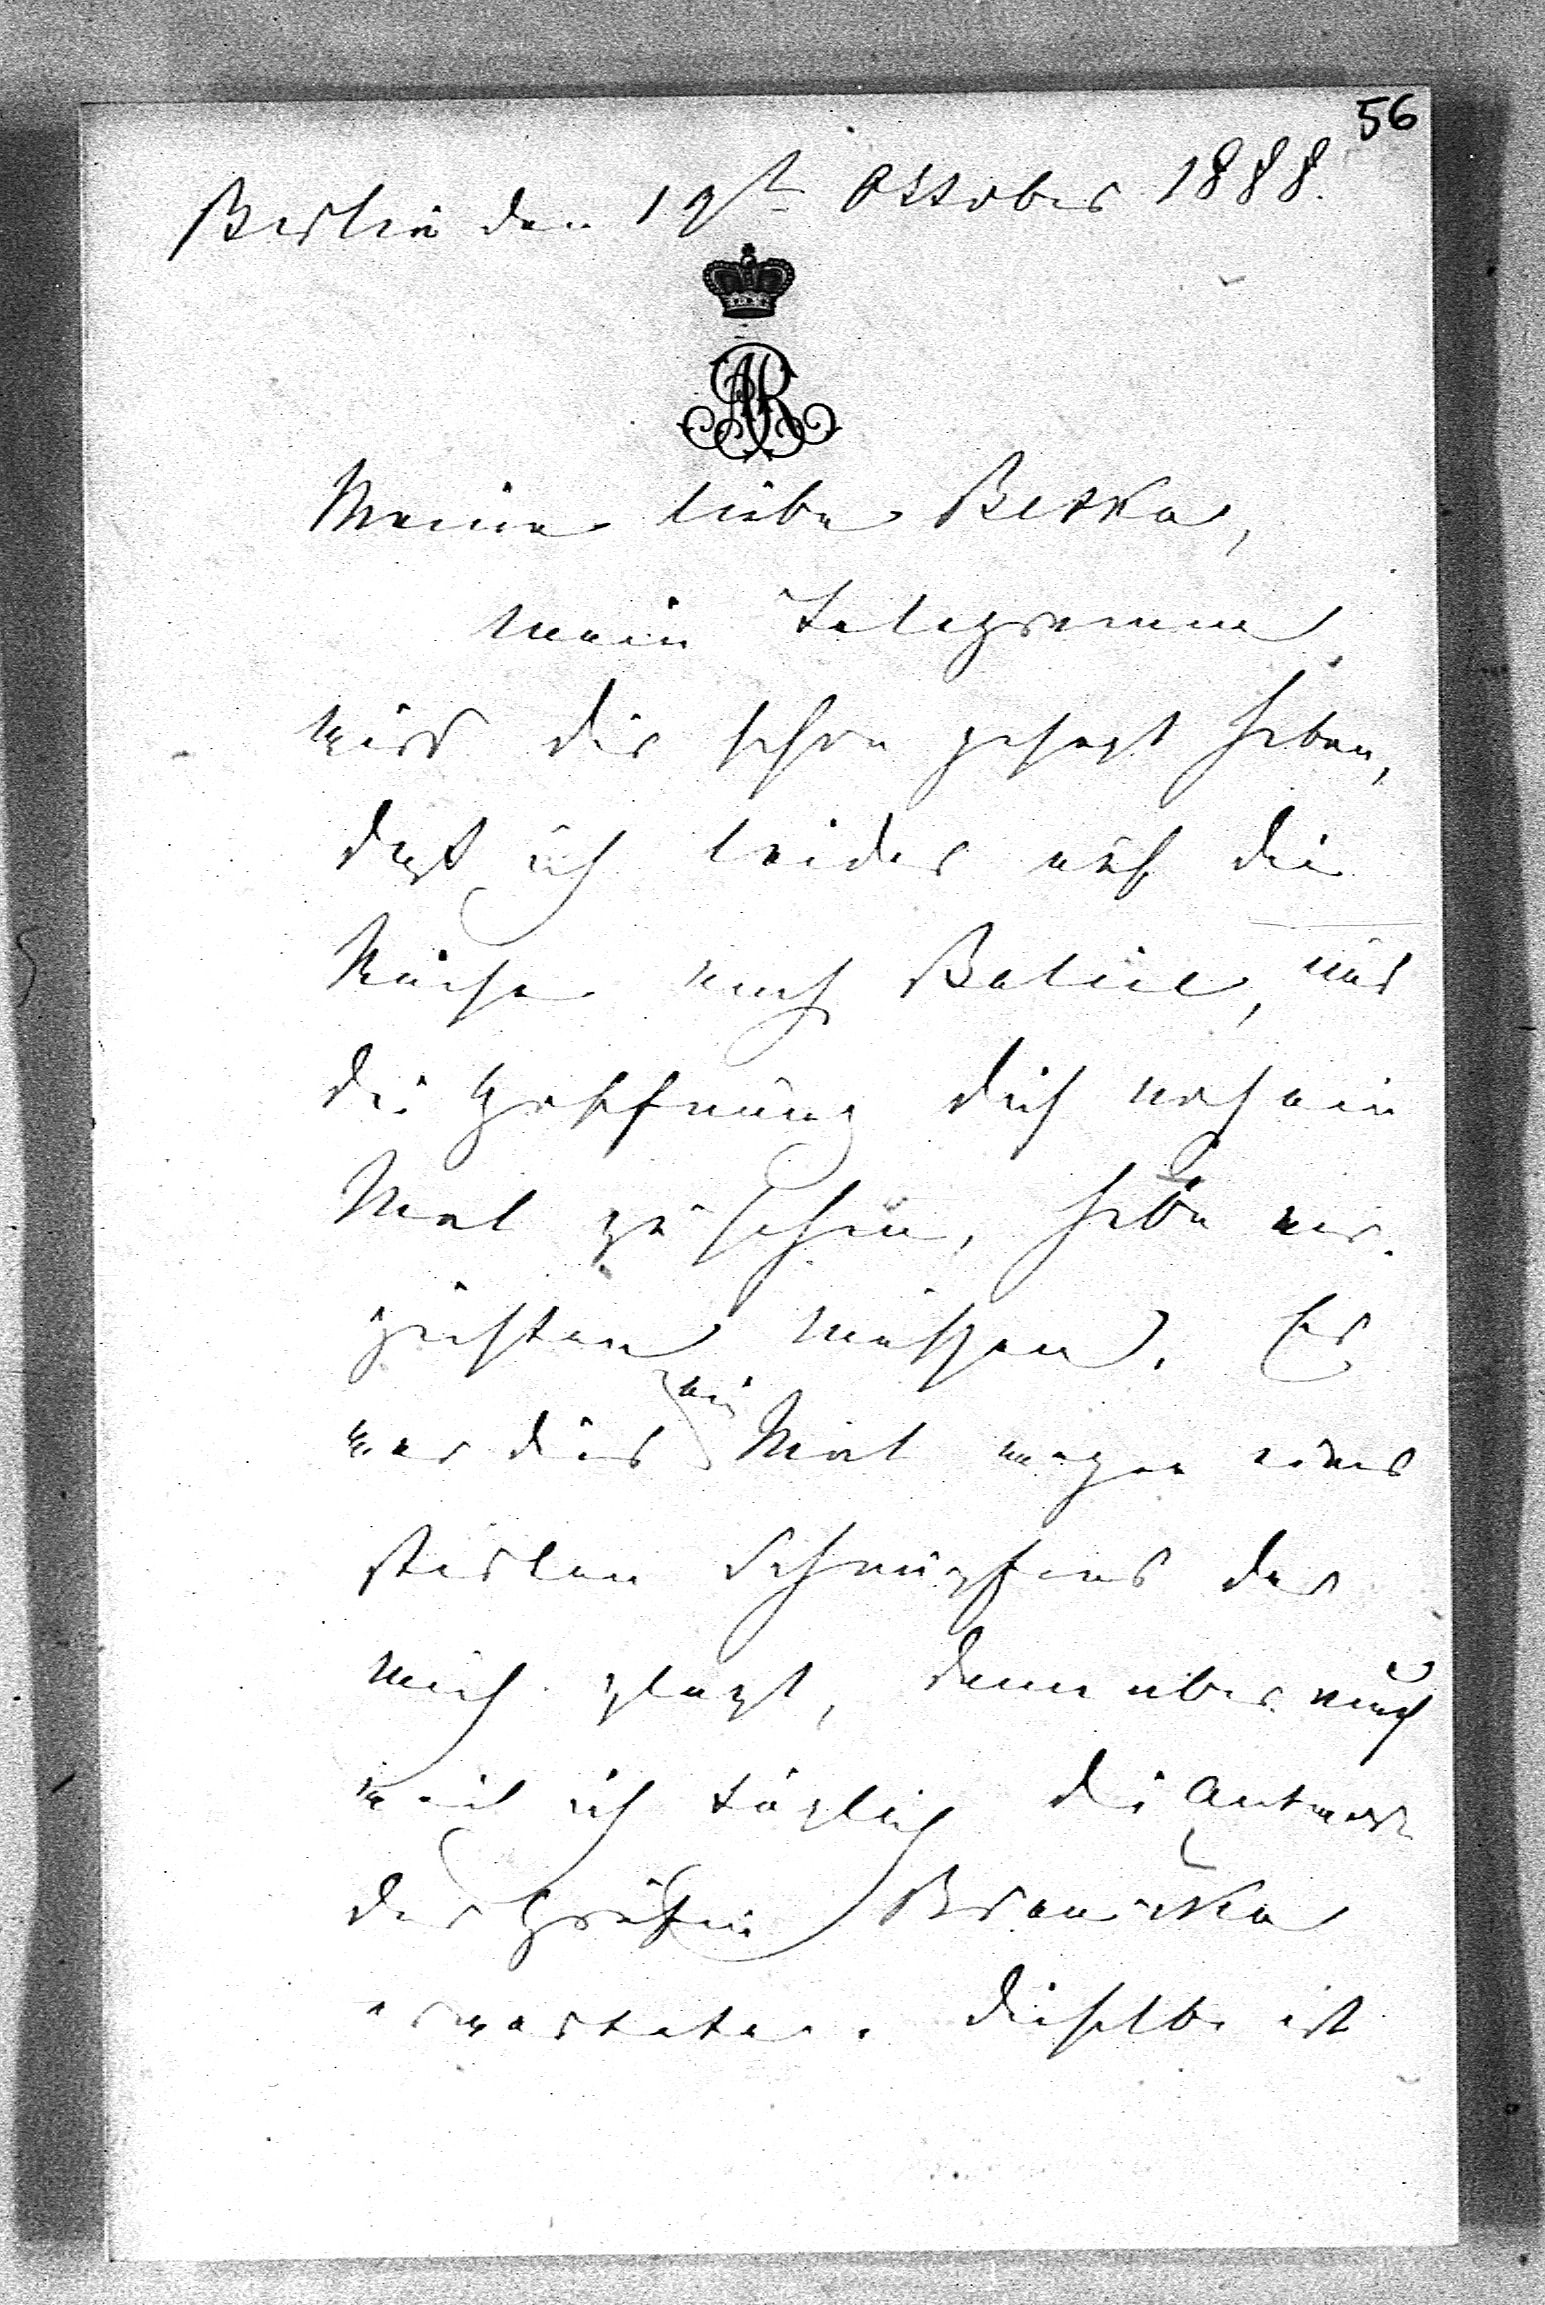 56
Berlin den 19ten Oktober 1888.
AR
Meine liebe Betka,
mein Telegramm
wird dir schon gesagt haben,
daß ich leider auf die
Reise nach Beloeil, und
die Hoffnung dich noch ein
Mal zu sehen, habe ver-
zichten müssen. Es
war dies ein Mal wegen eines
starken Schnupfens der
mich plagt, dann aber auch
weil ich täglich die Antwort
der Gräfin Branicka
erwartete. Dieselbe ist